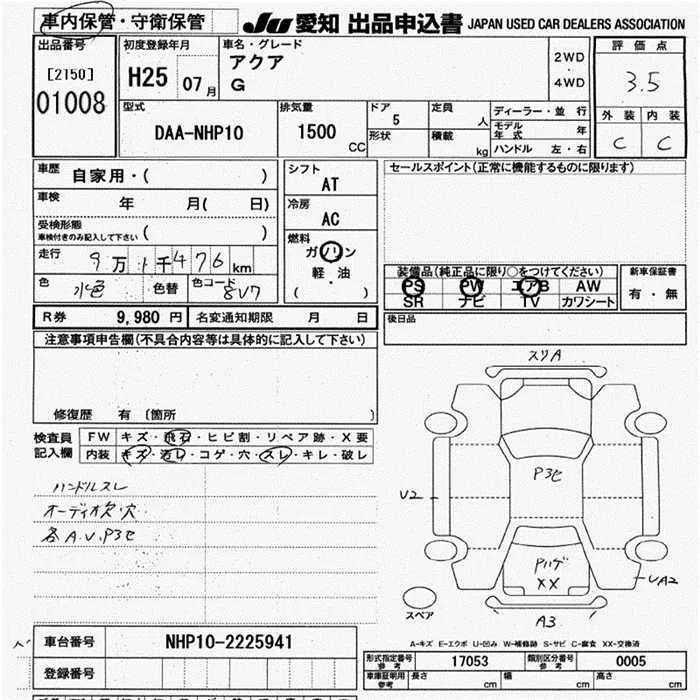 車内保管・守衛保管
JU 愛知 出品申込書 JAPAN USED CAR DEALERS ASSOCIATION
出品番号
[2150]
01008
初度登録年月
H25 07 月
車名・グレード
アクア
G
2WD
・
4WD
評価点
3.5
外装 内装
C C
型式
DAA-NHP10
排気量
1500
CC
ドア
5
形状
定員
人
積載
kg
ディーラー・並行
モデル年式 年
ハンドル 左・右
車歴
自家用・( )
車検
年 月( 日)
受検形態
車検付きのみ記入して下さい ( )
走行
9万1千476km
色
水色
色替
色コード
8V7
シフト
AT
冷房
AC
燃料
ガソリン
軽・油
( )
セールスポイント(正常に機能するものに限ります)
装備品(純正品に限り○をつけてください)
PS PW エアB AW
SR ナビ TV カワシート
新車保証書
有・無
後日品
R券 9,980 円 名変通知期限 月 日
注意事項申告欄(不具合内容等は具体的に記入して下さい)
修復歴 有 〔箇所 〕
検査員
記入欄
FW キズ・飛石・ヒビ割・リペア跡・X要
内装 キズ・汚レ・コゲ・穴・スレ・キレ・破レ
ハンドルスレ
オーディオ欠・穴
各A.U.P3セ
スリA
P3セ
U2
Pハゲ
XX
UA2
スペア
A3
A-キズ E-エクボ U-凹み W-補修跡 S-サビ C-腐食 XX-交換済
車台番号 NHP10-2225941
登録番号
形式指定番号
参考
17053
類別区分番号
参考
0005
車庫証明用
参考
長さ cm 幅 cm 高さ cm